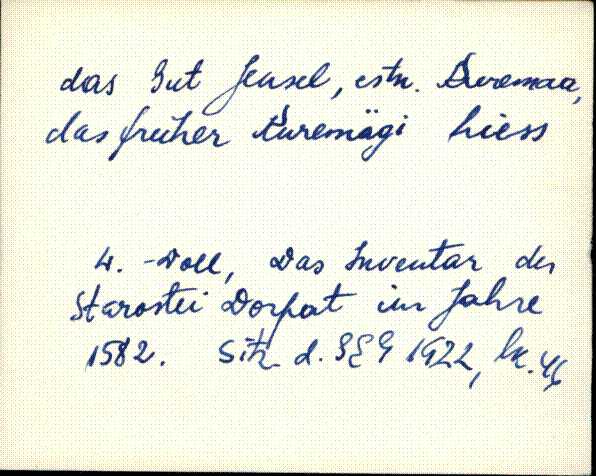 das Gut Jensel, estn. Kuremaa,
das früher Kuremägi hiess
W. Doll, Das Inventar der
Starostei Dorpat im Jahre
1582. Sitz. d. GEG 1922, lk. 46